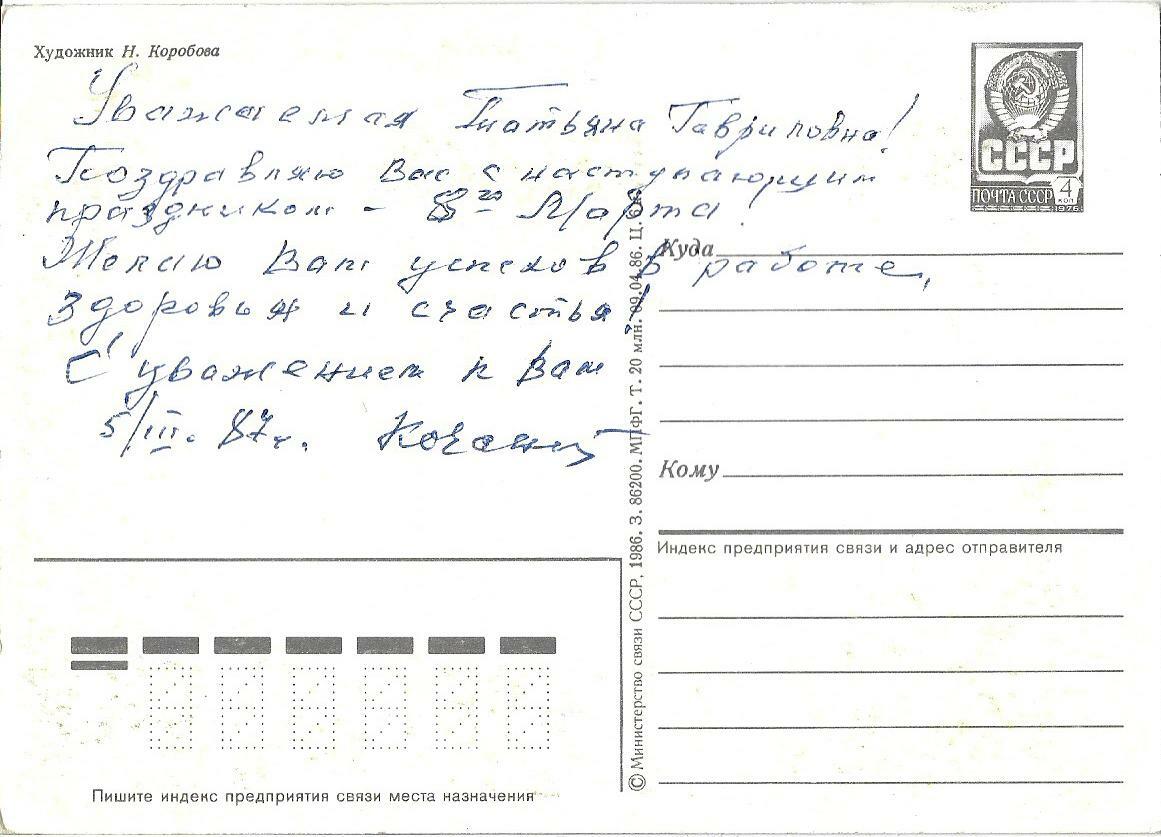 Художник Н. Коробова
Уважаемая Татьяна Гавриловна!
Поздравляю Вас с наступающим
праздником - 8го Марта!
Желаю Вам успехов в работе,
здоровья и счастья!
С уважением к Вам
5/III. 87г.
СССР
ПОЧТА СССР 4 КОП
1976
Куда
Кому
Индекс предприятия связи и адрес отправителя
© Министерство связи СССР, 1986. З. 86200. МПФГ. Т. 20 млн. 09.04.86. Ц. 6 к.
Пишите индекс предприятия связи места назначения